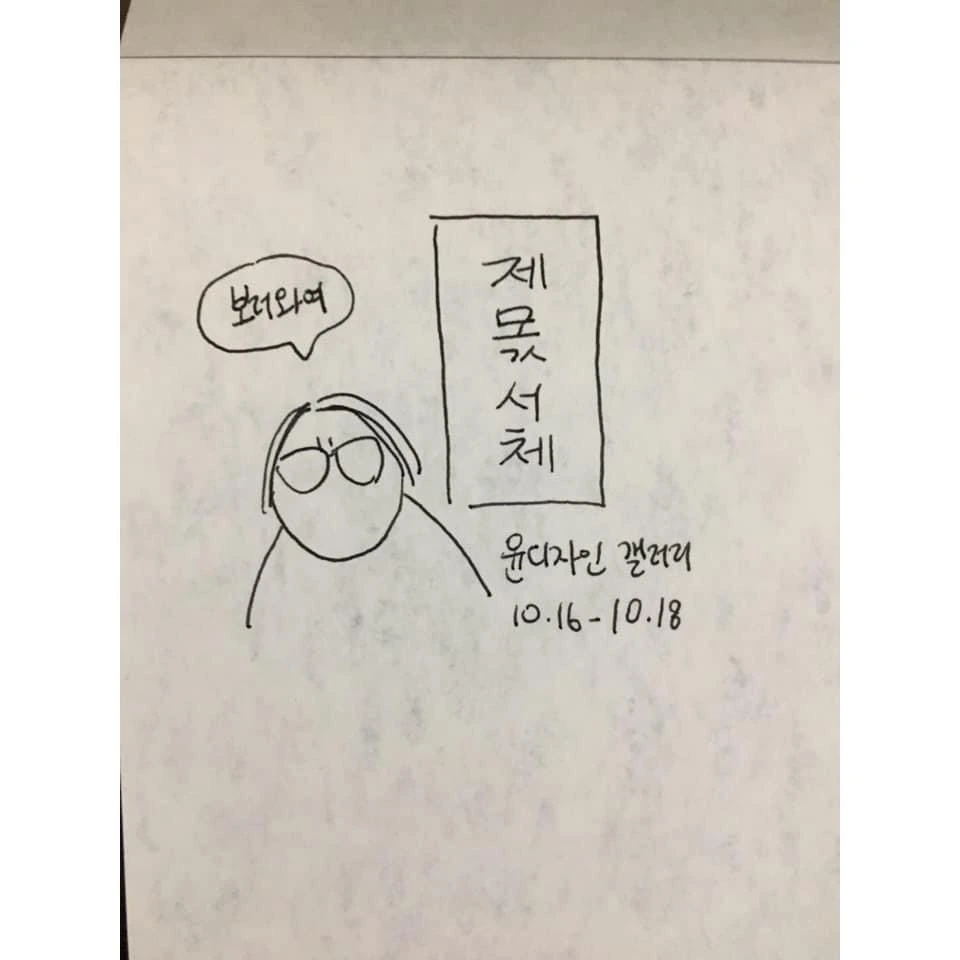 보러와여
제몫서체
윤디자인 갤러리
10.16-10.18